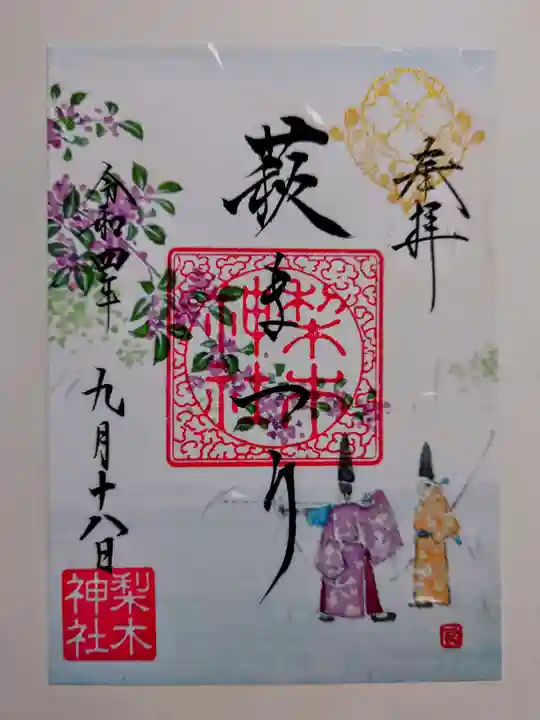 奉拝
萩まつり
梨木
神社
令和四年
九月十八日
梨木
神社